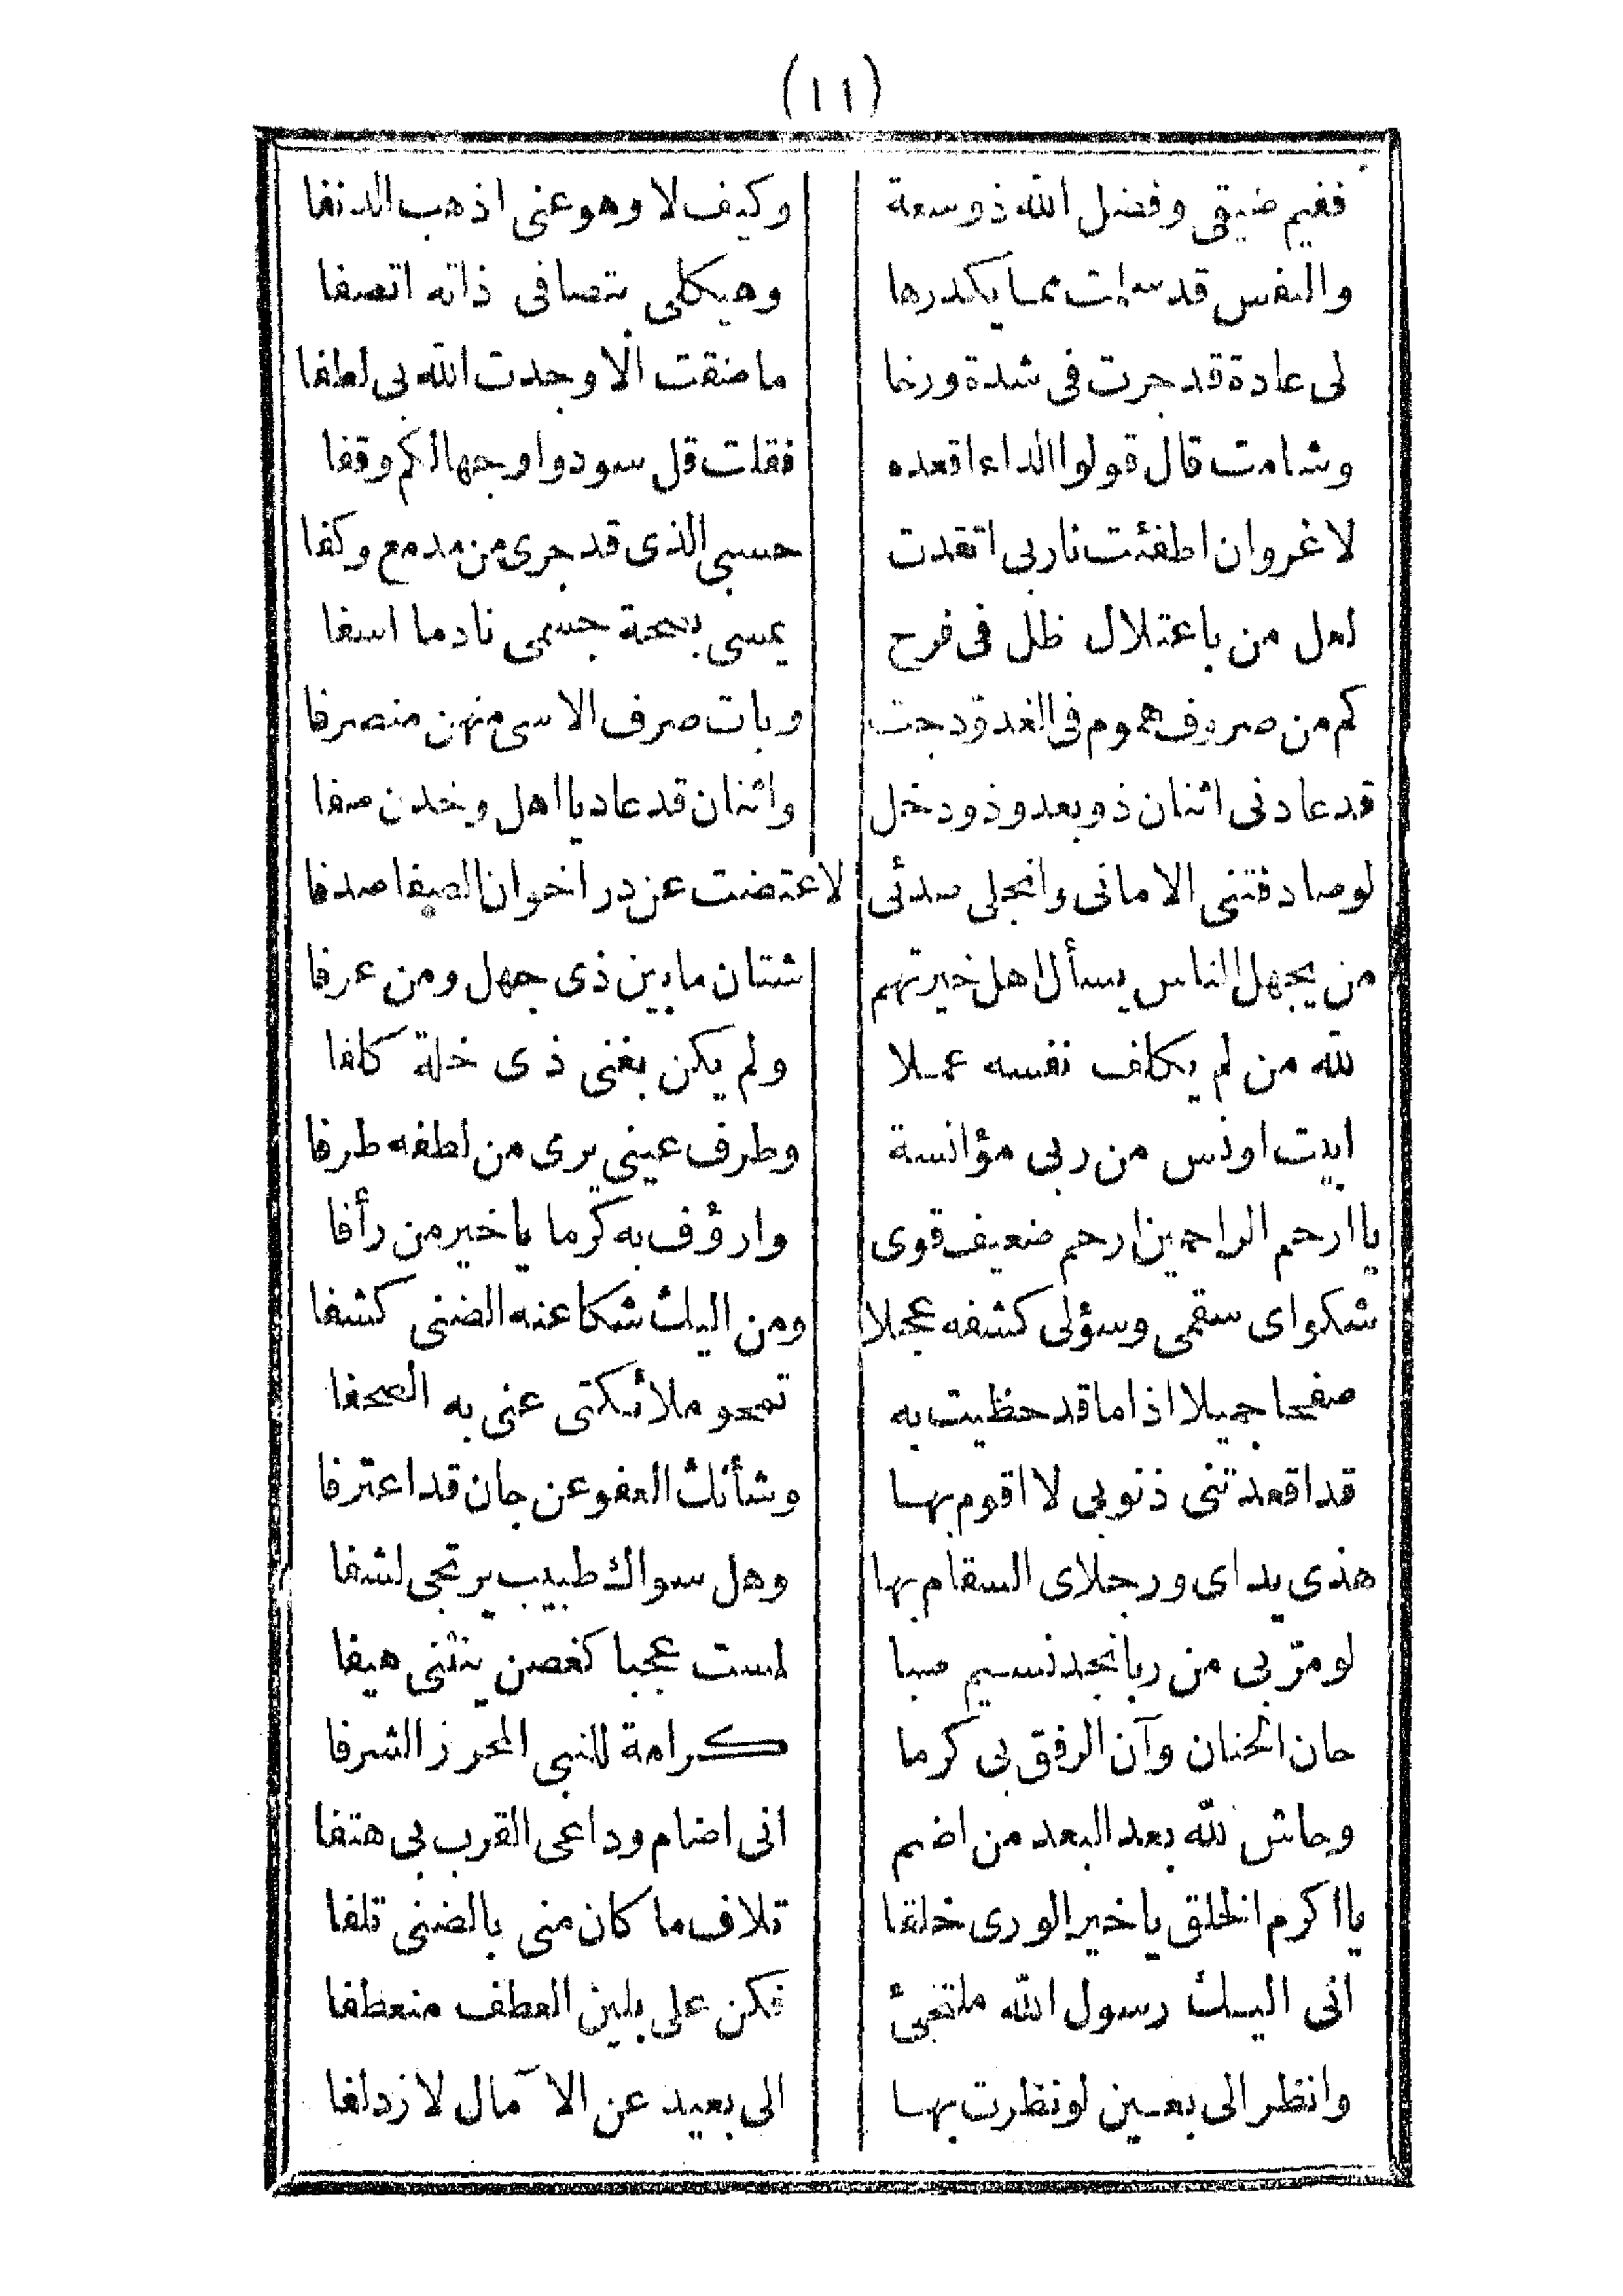 (١١)
ففيم ضيقى وفضل الله ذوسعة وكيف لا وهو عنى اذهب الدنفا
والنفس قد سلمت مما يكدرها وهيكلى بتصافى ذاته اتصفا
لى عادة قد جرت فى شدة ورخا ما ضقت الا وجدت الله بى لطفا
وشامت قال قولوا الداء اقعده فقلت قل سودوا وجها لكم وقفا
لا غروان اطفئت نار بى اتقدت حسبى الذى قد جرى من مدمع وكفا
لعل من باعتلال ظل فى فرح يمسى بصحة جسمى نادما اسفا
كم من صروف هموم فى الغدو دجت وبات صرف الاسى منهن منصرفا
قد عادنى اثنان ذو بعد وذو دخل واثنان قد عاديا اهل وخدن صفا
لو صادفتنى الامانى وانجلى صدئى لاعتضت عن در اخوان الصفا صدفا
من يجهل الناس يسأل اهل خبرتهم شتان ما بين ذى جهل ومن عرفا
لله من لم يكلف نفسه عملا ولم يكن بغنى ذى خلة كلفا
ابيت اونس من ربى مؤانسة وطرف عينى يرى من لطفه طرفا
يا ارحم الراحمين ارحم ضعيف قوى وارؤف به كرما يا خير من رأفا
شكواى سقمى وسؤلى كشفه عجلا ومن اليك شكا عنه الضنى كشفا
صفحا جميلا اذا ما قد حظيت به تمحو ملائكتى عنى به الصحفا
قد اقعدتنى ذنوبى لا اقوم بها وشأنك العفو عن جان قد اعترفا
هذى يداى ورجلاى السقام بها وهل سواك طبيب يرتجى لشفا
لو مرّ بى من ربا نجد نسيم صبا لمست عجبا كغصن ينثنى هيفا
حان الحنان وآن الرفق بى كرما كرامة للنبى المحرز الشرفا
وحاش لله بعد البعد من اضم انى اضام وداعى القرب بى هتفا
يا اكرم الخلق يا خير الورى خلقا تلاف ما كان منى بالضنى تلفا
انى اليك رسول الله ملتجئ فكن على بلين العطف منعطفا
وانظر الى بعين لو نظرت بها الى بعيد عن الآمال لازدلفا